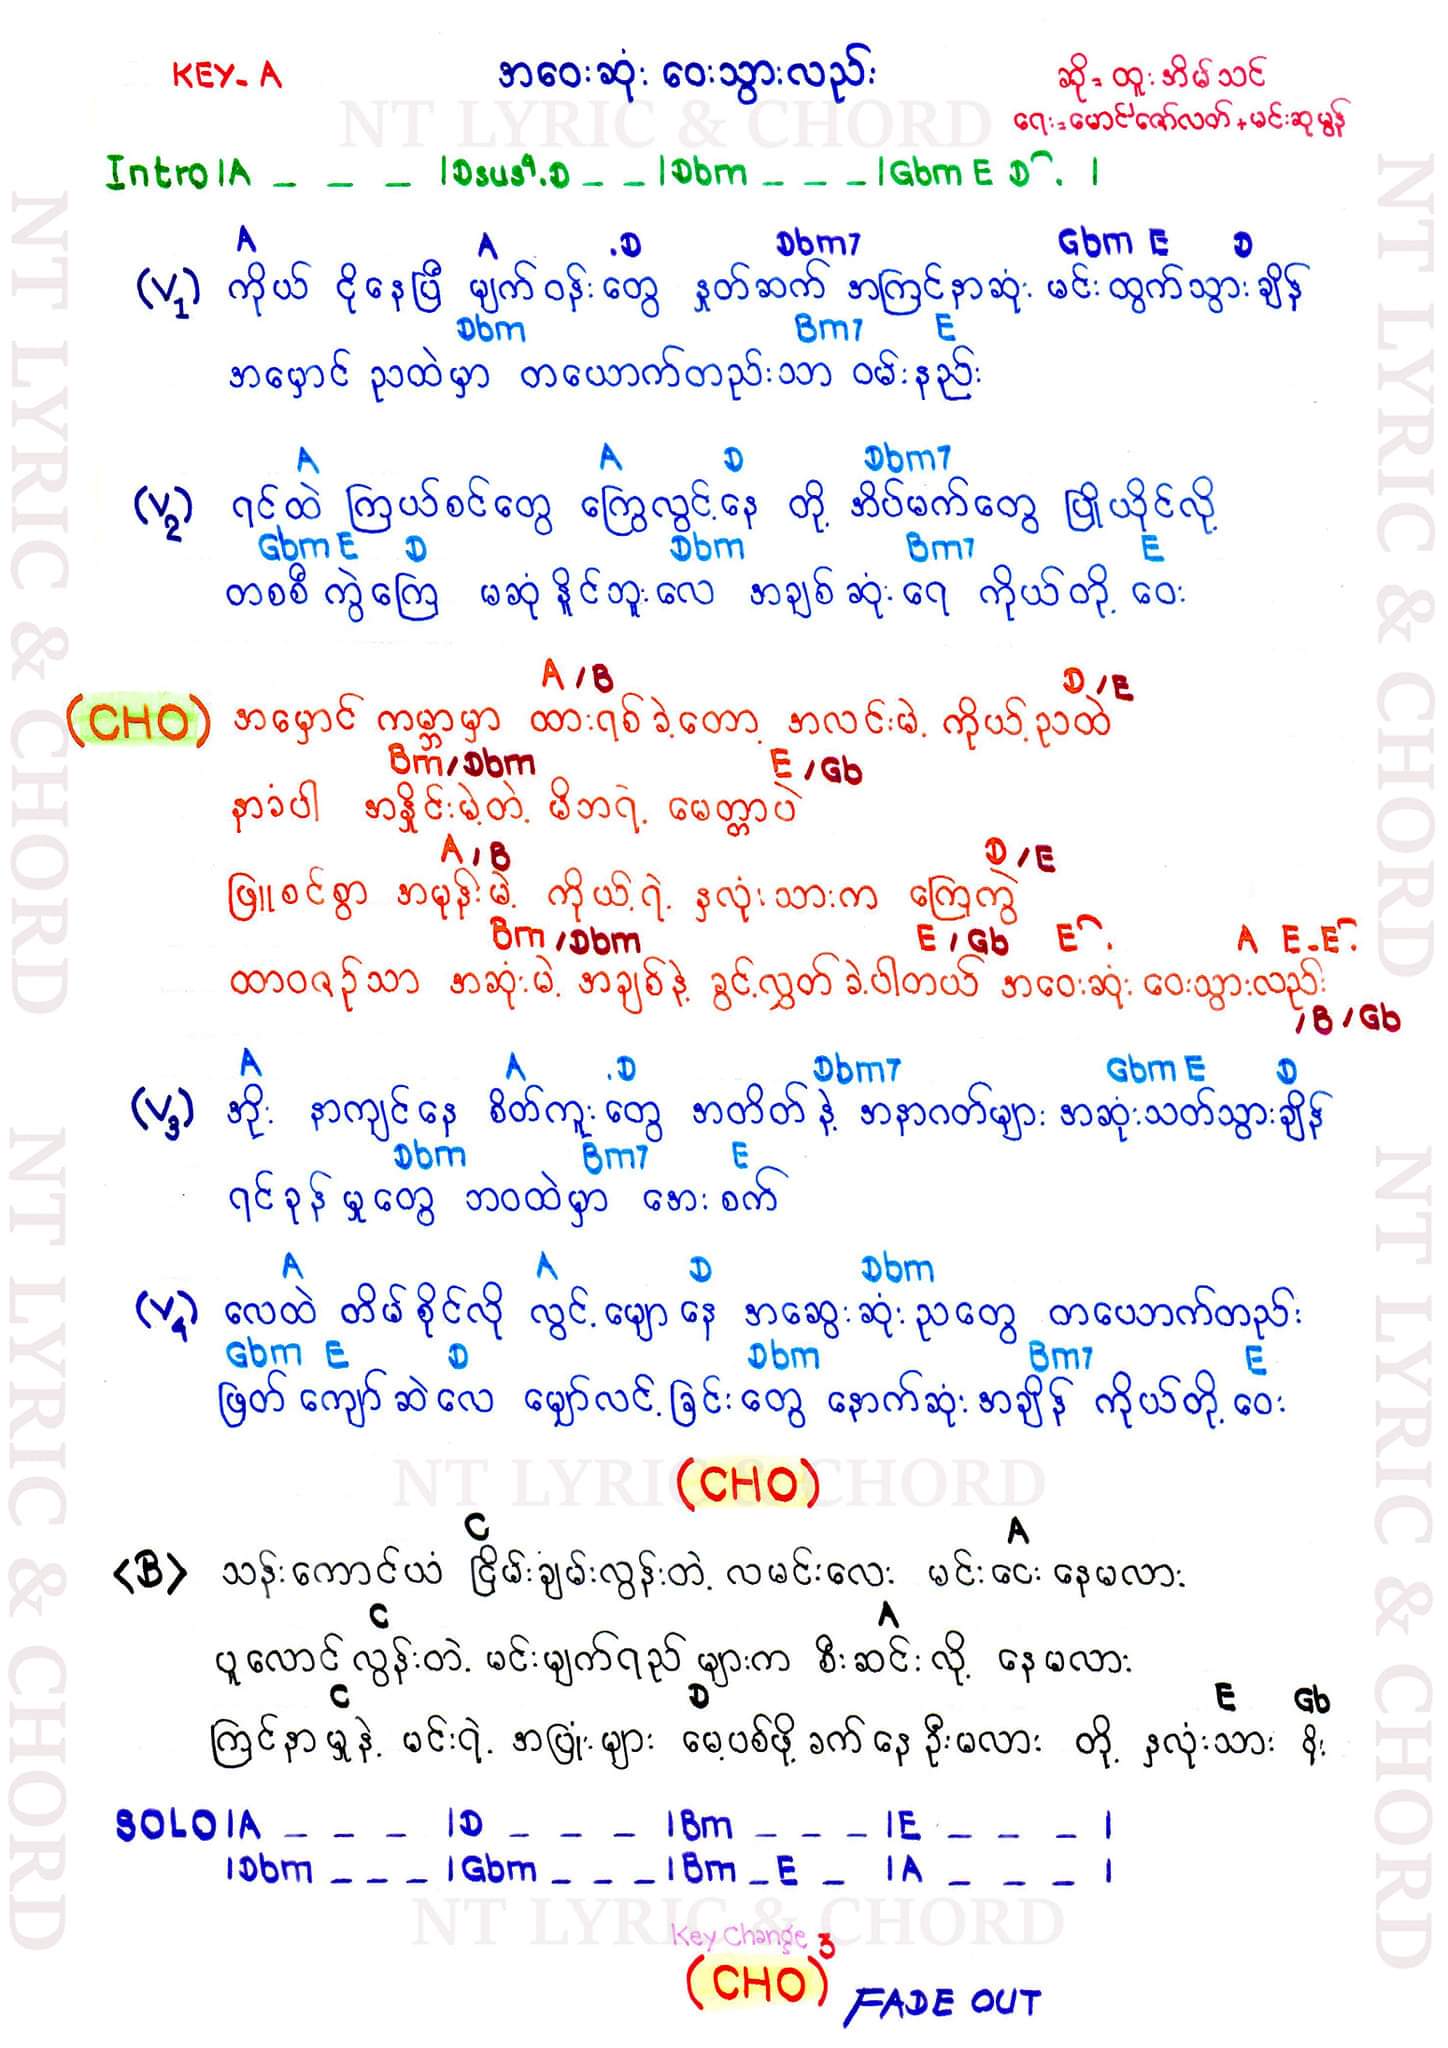 KEY- A
အဝေးဆုံး ဝေးသွားလည်း
ဆို = ထူးအိမ်သင်
ရေး = မောင်ဇော်လတ် + မင်းဆုမွန်
NT LYRIC & CHORD
Intro |A _ _ _ |Dsus⁹.D _ _ |Dbm _ _ _ |Gbm E D⌒. |
A A .D Dbm7 Gbm E D
(V1) ကိုယ် ငိုနေပြီ မျက်ဝန်းတွေ နှုတ်ဆက် အကြင်နာဆုံး မင်းထွက်သွားချိန်
Dbm Bm7 E
အမှောင် ညထဲမှာ တယောက်တည်းသာ ဝမ်းနည်း
A A D Dbm7
(V2) ရင်ထဲ ကြယ်စင်တွေ ကြွေလွင့်နေ တို့ အိပ်မက်တွေ ပြိုယိုင်လို့
Gbm E D Dbm Bm7 E
တစစီ ကွဲကြေ မဆုံနိူင်ဘူးလေ အချစ်ဆုံးရေ ကိုယ်တို့ ဝေး
A / B D / E
(CHO) အမှောင် ကမ္ဘာမှာ ထားရစ်ခဲ့တော့ အလင်းမဲ့ ကိုယ့်ညထဲ
Bm / Dbm E / Gb
နာခံပါ အနှိုင်းမဲ့တဲ့ မိဘရဲ့ မေတ္တာပဲ
A / B D / E
ဖြူစင်စွာ အမုန်းမဲ့ ကိုယ့်ရဲ့ နှလုံးသားက ကြေကွဲ
Bm / Dbm E / Gb E⌒. A E - E⌒.
ထာဝစဉ်သာ အဆုံးမဲ့ အချစ်နဲ့ ခွင့်လွှတ်ခဲ့ပါတယ် အဝေးဆုံး ဝေးသွားလည်း
/ B / Gb
A A .D Dbm7 Gbm E D
(V3) အိုး နာကျင်နေ စိတ်ကူးတွေ အတိတ်နဲ့ အနာဂတ်များ အဆုံးသတ်သွားချိန်
Dbm Bm7 E
ရင်ခုန်မှုတွေ ဘဝထဲမှာ အေးစက်
A A D Dbm
(V4) လေထဲ တိမ်စိုင်လို လွင့်မျောနေ အဆွေးဆုံးညတွေ တယောက်တည်း
Gbm E D Dbm Bm7 E
ဖြတ်ကျော်ဆဲလေ မျှော်လင့်ခြင်းတွေ နောက်ဆုံးအချိန် ကိုယ်တို့ဝေး
NT LYRIC & CHORD
(CHO)
C A
<B> သန်းကောင်ယံ ငြိမ်းချမ်းလွန်းတဲ့ လမင်းလေး မင်းငေးနေမလား
C A
ပူလောင်လွန်းတဲ့ မင်းမျက်ရည်များက စီးဆင်းလို့ နေမလား
C D E Gb
ကြင်နာမှုနဲ့ မင်းရဲ့ အပြုံးများ မေ့ပစ်ဖို့ခက်နေဦးမလား တို့ နှလုံးသား စိုး
SOLO |A _ _ _ |D _ _ _ |Bm _ _ _ |E _ _ _ |
|Dbm _ _ _ |Gbm _ _ _ |Bm _ E _ |A _ _ _ |
NT LYRIC & CHORD
Key Change
(CHO)³ FADE OUT
NT LYRIC & CHORD
NT LYRIC & CHORD
NT LYRIC & CHORD
NT LYRIC & CHORD